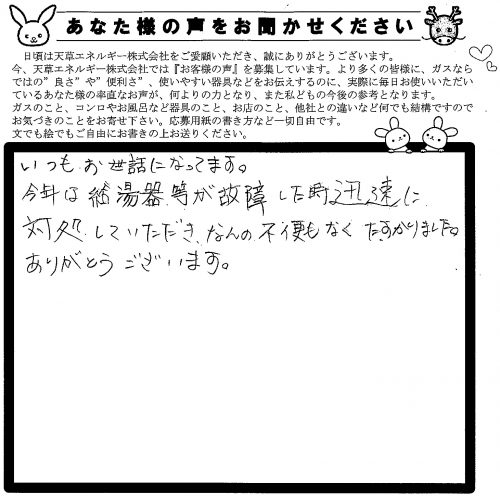 あなた様の声をお聞かせください
日頃は天草エネルギー株式会社をご愛顧いただき、誠にありがとうございます。
今、天草エネルギー株式会社では『お客様の声』を募集しています。より多くの皆様に、ガスなら
ではの”良さ”や”便利さ”、使いやすい器具などをお伝えするのに、実際に毎日お使いいただい
ているあなた様の率直なお声が、何よりの力となり、また私どもの今後の参考となります。
ガスのこと、コンロやお風呂など器具のこと、お店のこと、他社との違いなど何でも結構ですので
お気づきのことをお寄せ下さい。応募用紙の書き方など一切自由です。
文でも絵でもご自由にお書きの上お送りください。
いつもお世話になってます。
今年は給湯器等が故障した時迅速に
対処していただき、なんの不便もなくたすかりました。
ありがとうございます。